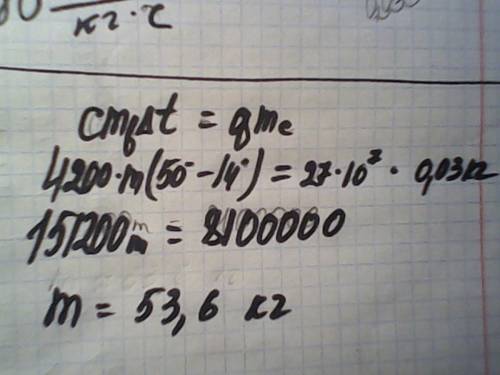 кг·°С
cmвΔt = qmc
4200·m(50°-14°) = 27·10⁷· 0,03кг
151200m = 8100000
m = 53,6 кг